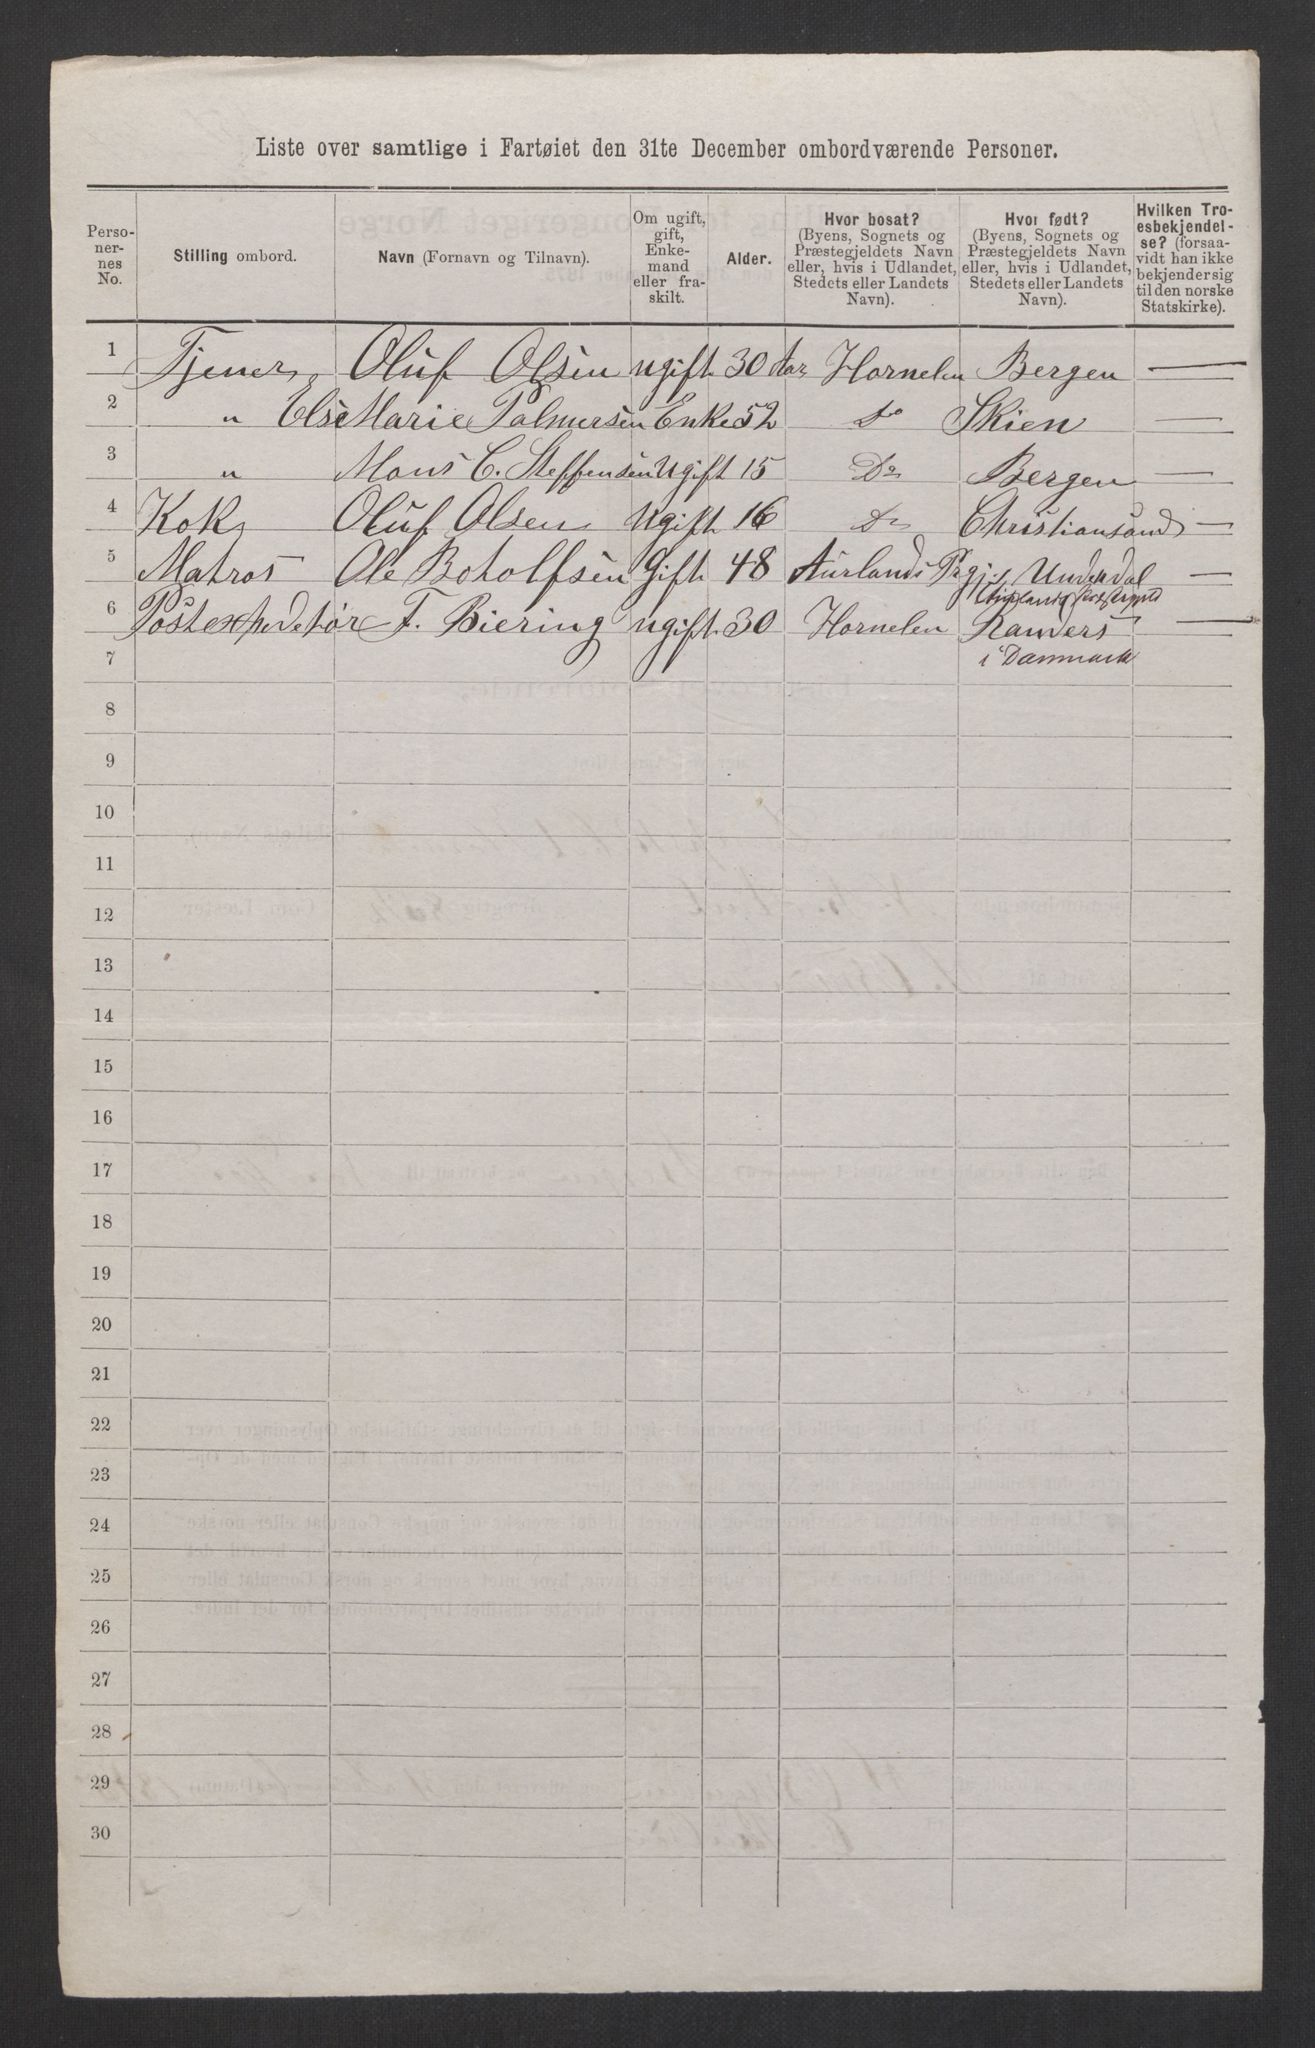 Liste over samtlige i Fartøiet den 31te December ombordværende Personer.
Perso-
nernes
No.
Stilling ombord.
Navn (Fornavn og Tilnavn).
Om ugift,
gift,
Enke-
mand
eller fra-
skilt.
Alder.
Hvor bosat?
(Byens, Sognets og
Præstegjeldets Navn
eller, hvis i Udlandet,
Stedets eller Landets
Navn).
Hvor født?
(Byens, Sognets og
Præstegjeldets Navn
eller, hvis i Udlandet,
Stedets eller Landets
Navn).
Hvilken Tro-
esbekjendel-
se? (forsaa-
vidt han ikke
bekjender sig
til den norske
Statskirke).
1 Tjener Oluf Olsen ugift 30 Aar Hornelen Bergen —
2 " Else Marie Palmersen Enke 52 Do Skien —
3 " Mons C. Steffensen Ugift 15 Do Bergen —
4 Kok Oluf Olsen Ugift 16 Do Christiansand —
5 Matros Ole Botolfsen Gift 48 Aurlands Prgj. Underdal —
6 Postexpeditør F. Biering ugift 30 Hornelen Randers —
7 i Danmark
8
9
10
11
12
13
14
15
16
17
18
19
20
21
22
23
24
25
26
27
28
29
30